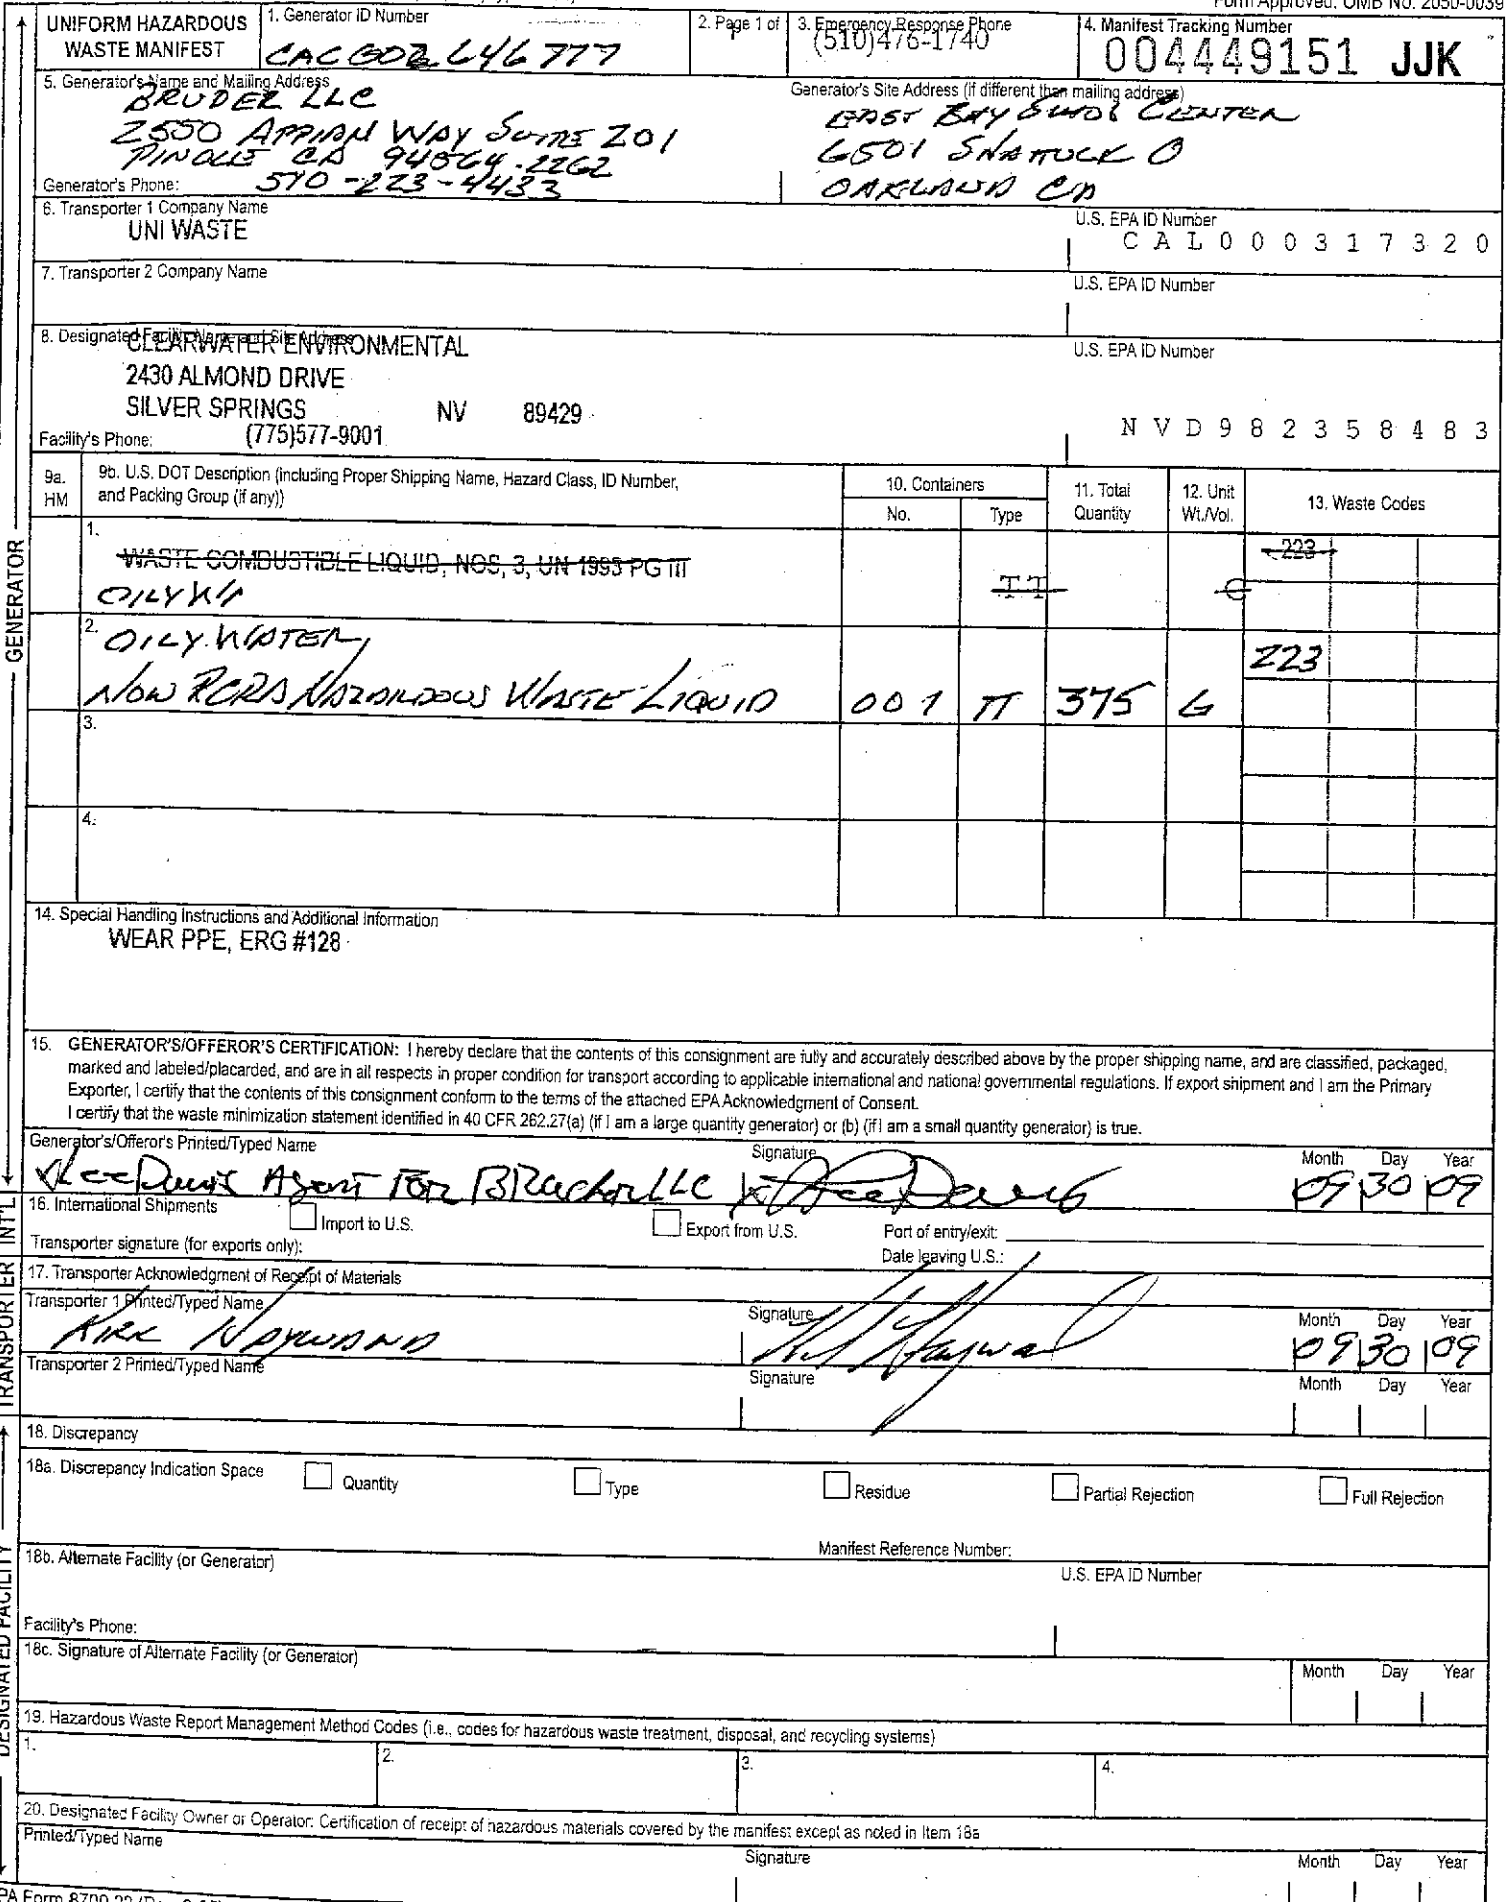 Form Approved. OMB No. 2050-0039
UNIFORM HAZARDOUS WASTE MANIFEST
1. Generator ID Number
2. Page 1 of
1
3. Emergency Response Phone
(510)476-1740
4. Manifest Tracking Number
004449151 JJK
5. Generator's Name and Mailing Address
BRUDER LLC
2550 APPIAN WAY SUITE 201
PINOLE CA 94564-2262
Generator's Phone: 510-223-4433
Generator's Site Address (if different than mailing address)
EAST BAY CENTER
6501 SHATTUCK
OAKLAND CA
6. Transporter 1 Company Name
UNI WASTE
U.S. EPA ID Number
CAL000317320
7. Transporter 2 Company Name
U.S. EPA ID Number
8. Designated Facility Name and Site Address
CLEARWATER ENVIRONMENTAL
2430 ALMOND DRIVE
SILVER SPRINGS NV 89429
Facility's Phone: (775)577-9001
U.S. EPA ID Number
NVD982358483
9a. HM
9b. U.S. DOT Description (including Proper Shipping Name, Hazard Class, ID Number, and Packing Group (if any))
10. Containers
No.
Type
11. Total Quantity
12. Unit Wt./Vol.
13. Waste Codes
1.
WASTE COMBUSTIBLE LIQUID, NOS, 3, UN 1993 PG III
TT
G
223
OILY WA
2. OILY WATER,
223
NON RCRA HAZARDOUS WASTE LIQUID 001 TT 375 G
3.
4.
14. Special Handling Instructions and Additional Information
WEAR PPE, ERG #128
15. GENERATOR'S/OFFEROR'S CERTIFICATION: I hereby declare that the contents of this consignment are fully and accurately described above by the proper shipping name, and are classified, packaged,
marked and labeled/placarded, and are in all respects in proper condition for transport according to applicable international and national governmental regulations. If export shipment and I am the Primary
Exporter, I certify that the contents of this consignment conform to the terms of the attached EPA Acknowledgment of Consent.
I certify that the waste minimization statement identified in 40 CFR 262.27(a) (if I am a large quantity generator) or (b) (if I am a small quantity generator) is true.
Generator's/Offeror's Printed/Typed Name
Signature
Month Day Year
x Lee Davis Agent For Bruder LLC x Lee Davis 09 30 09
16. International Shipments
Import to U.S.
Export from U.S.
Port of entry/exit:
Transporter signature (for exports only):
Date leaving U.S.:
17. Transporter Acknowledgment of Receipt of Materials
Transporter 1 Printed/Typed Name
Signature
Month Day Year
KIRK HAYWARD
09 30 09
Transporter 2 Printed/Typed Name
Signature
Month Day Year
18. Discrepancy
18a. Discrepancy Indication Space
Quantity
Type
Residue
Partial Rejection
Full Rejection
Manifest Reference Number:
18b. Alternate Facility (or Generator)
U.S. EPA ID Number
Facility's Phone:
18c. Signature of Alternate Facility (or Generator)
Month Day Year
19. Hazardous Waste Report Management Method Codes (i.e., codes for hazardous waste treatment, disposal, and recycling systems)
1.
2.
3.
4.
20. Designated Facility Owner or Operator: Certification of receipt of hazardous materials covered by the manifest except as noted in Item 18a
Printed/Typed Name
Signature
Month Day Year
GENERATOR
INT'L
TRANSPORTER
DESIGNATED FACILITY